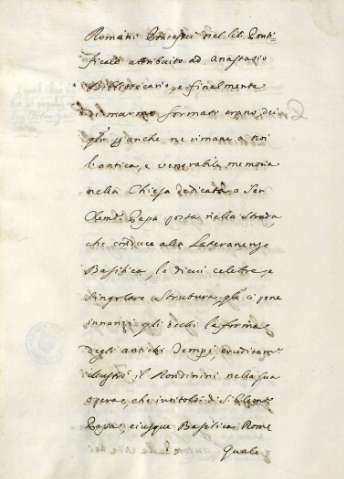 Romani Pontefici nel lib. Ponti=
ficale attribuito ad Anastasio
Bibliotecario, e finalmente
di marmo formati erano, dei
quali anche ne rimane a noi
l'antica, e venerabile memoria
nella Chiesa dedicata a San
Clemte Papa posta nella strada
che conduce alla Lateranense
Basilica, le di cui celebre, e
singolare struttura, gli ci pone
innanzi gli occhi la forma
degli antichi Tempi, eruditamte
illustrò il Rondinini nella sua
opera, che intitolò di S. Clemte
Papa, eiusque Basilica Rome
Quale